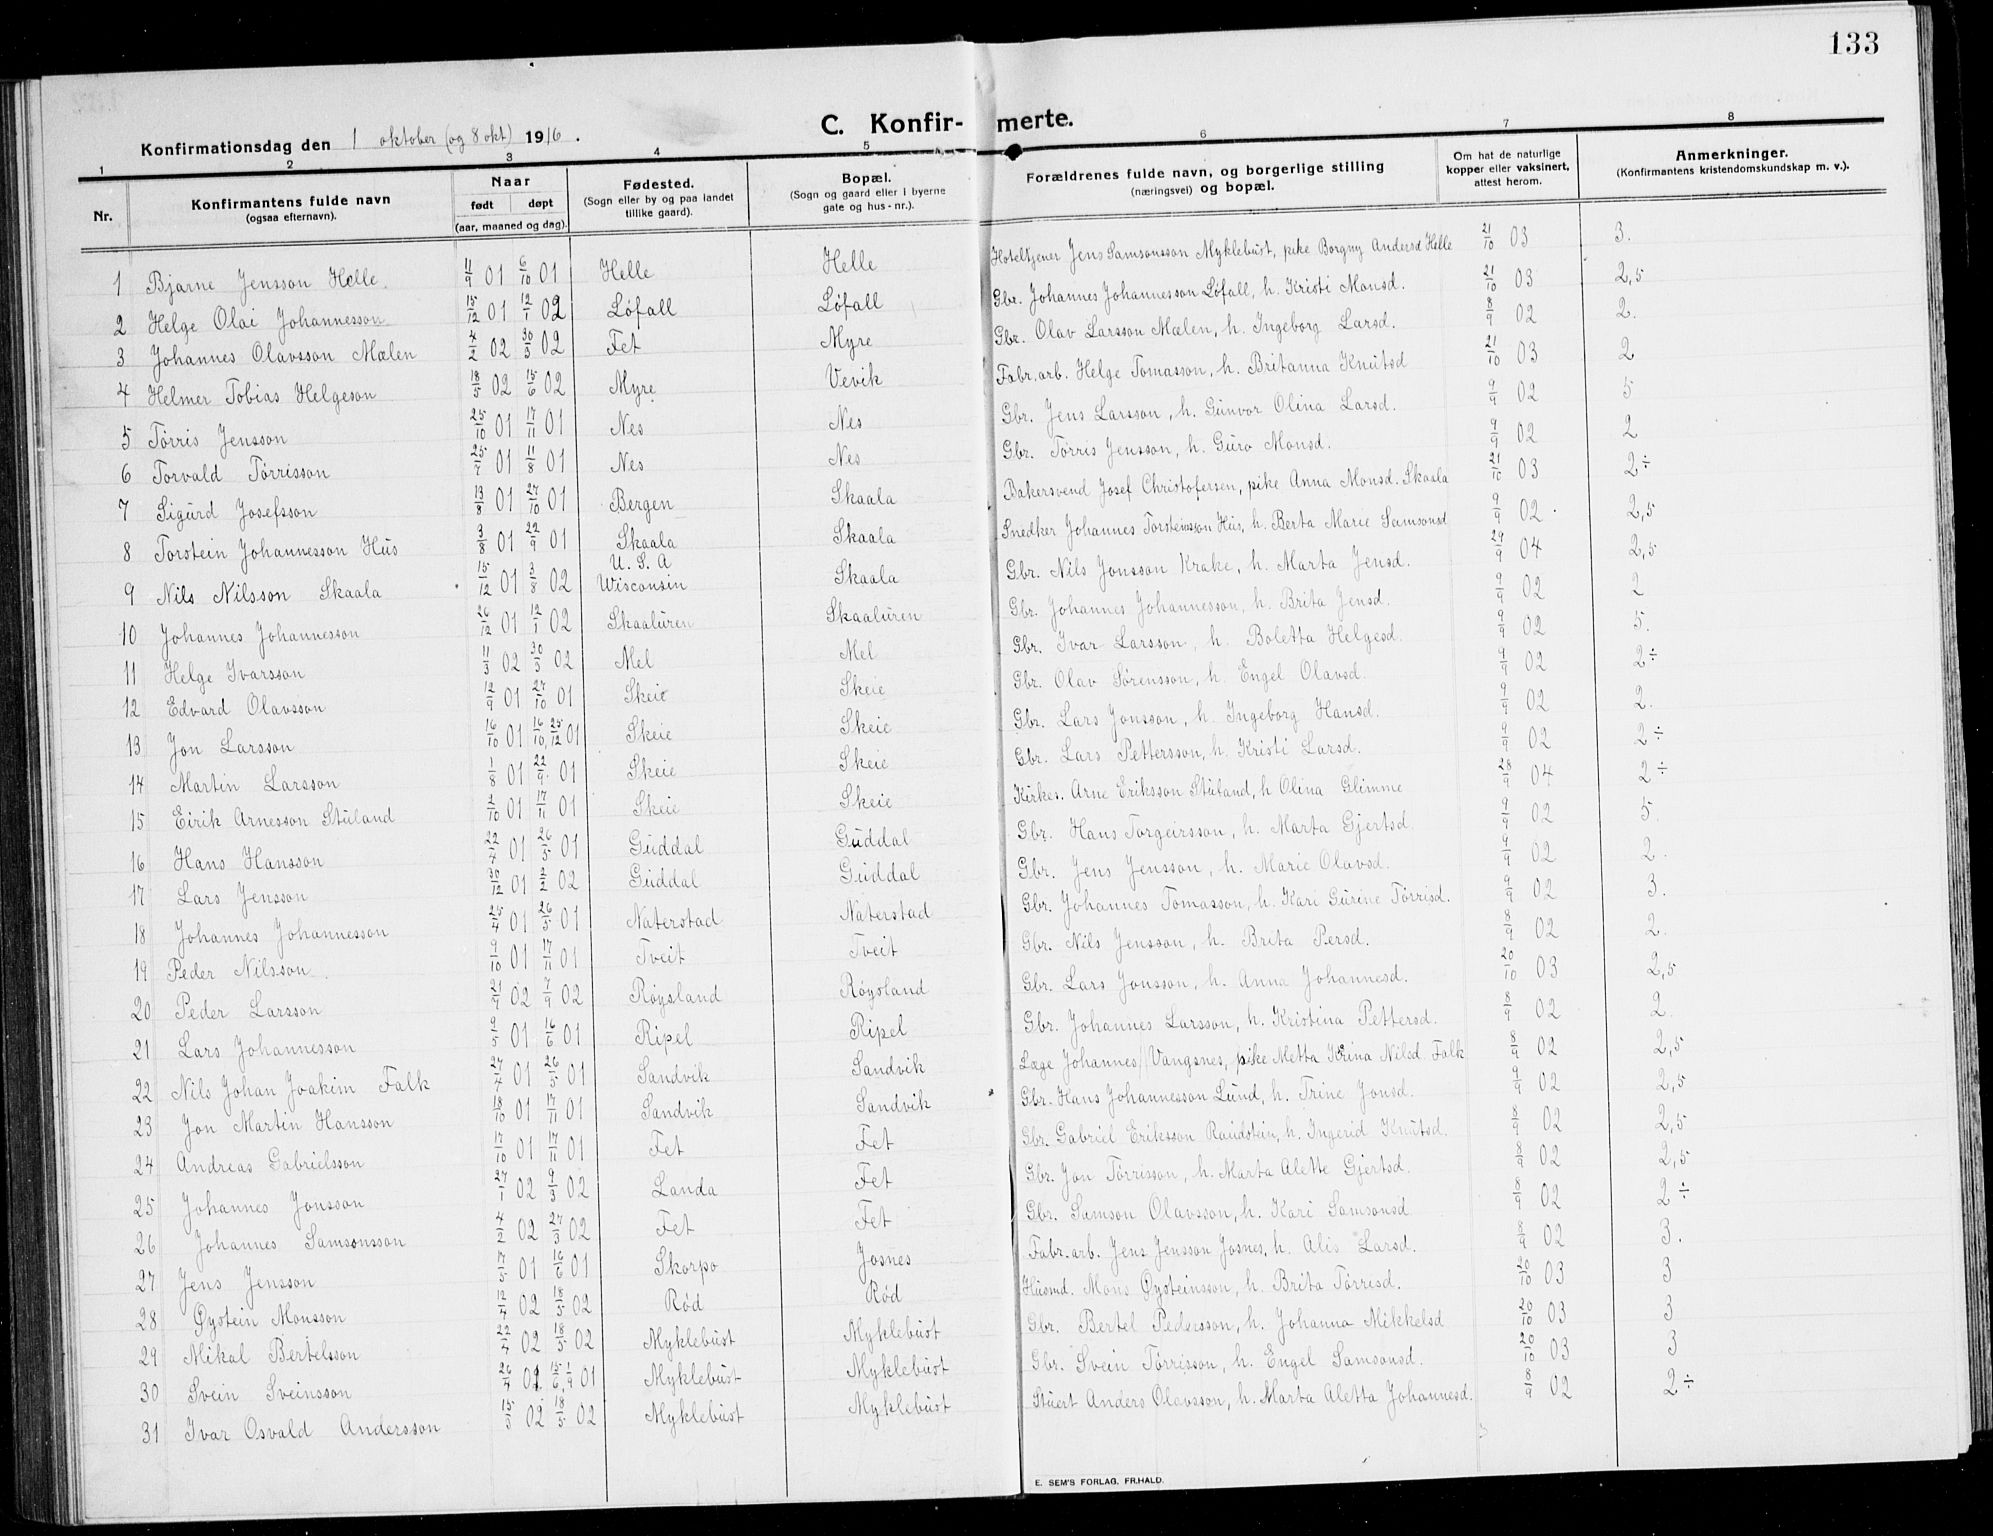 133
C. Konfirmerte.
Konfirmationsdag den 1 oktober (og 8 okt) 1916.
1 2 3 4 5 6 7 8
Nr. | Konfirmantens fulde navn (ogsaa efternavn). | Naar født døpt (aar, maaned og dag). | Fødested. (Sogn eller by og paa landet tillike gaard). | Bopæl. (Sogn og gaard eller i byerne gate og hus-nr.). | Forældrenes fulde navn, og borgerlige stilling (næringsvei) og bopæl. | Om hat de naturlige kopper eller vaksinert, attest herom. | Anmerkninger. (Konfirmantens kristendomskundskap m. v.).
1 Bjarne Jensson Helle. 11/9 01 6/10 01 Helle Helle Hoteltjener Jens Samsonsson Myklebust, pike Borgny Andersd Helle 21/10 03 3.
2 Helge Olai Johannesson 15/12 01 12/1 02 Løfall Løfall Gbr. Johannes Johannesson Løfall, h. Kristi Monsd. 21/10 03 2,5
3 Johannes Olavsson Mælen 4/2 02 30/3 02 Fet Myre Gbr. Olav Larsson Mælen, h. Ingeborg Larsd. 8/9 02 2.
4 Helmer Tobias Helgeson 18/5 02 15/6 02 Myre Vevik Fabr. arb. Helge Tomasson, h. Britanna Knutsd 21/10 03 2
5 Tørris Jensson 25/10 01 17/11 01 Nes Nes Gbr. Jens Larsson, h. Gunvor Olina Larsd. 9/9 02 5
6 Torvald Tørrisson 25/7 01 11/8 01 Nes Nes Gbr. Tørris Jensson, h. Guro Monsd. 9/9 02 2
7 Sigurd Josefsson 13/8 01 27/10 01 Bergen Skaala Bakersvend Josef Christofersen, pike Anna Monsd. Skaala 21/10 03 2÷
8 Torstein Johannesson Hus 3/8 01 22/9 01 Skaala Skaala Snedker Johannes Torsteinsson Hus, h. Berta Marie Samsonsd 9/9 02 2,5
9 Nils Nilsson Skaala 15/12 01 3/8 02 U. S. A Wisconsin Skaala Gbr. Nils Jonsson Krake, h. Marta Jensd. 29/9 04 2,5
10 Johannes Johannesson 26/12 01 12/1 02 Skaaluren Skaaluren Gbr. Johannes Johannesson, h. Brita Jensd. 9/9 02 2
11 Helge Ivarsson 11/3 02 30/3 02 Mel Mel Gbr. Ivar Larsson, h. Boletta Helgesd. 9/9 02 5.
12 Edvard Olavsson 12/9 01 27/10 01 Skeie Skeie Gbr. Olav Sørensson, h. Engel Olavsd. 9/9 02 2÷
13 Jon Larsson 16/10 01 16/10, 25/12 01 Skeie Skeie Gbr. Lars Jonsson, h. Ingeborg Hansd. 9/9 02 2.
14 Martin Larsson 1/8 01 22/9. 01 Skeie Skeie Gbr. Lars Pettersson, h. Kristi Larsd. 9/9 02 2÷
15 Eirik Arnesson Stuland 2/10 01 17/11 01 Skeie Skeie Kirkes. Arne Eriksson Stuland, h Olina Glimme 28/9 04 2÷
16 Hans Hansson 22/4 01 26/5 01 Guddal Guddal Gbr. Hans Torgeirsson, h. Marta Gjertsd. 9/9 02 5.
17 Lars Jensson 30/12 01 2/2 02 Guddal Guddal Gbr. Jens Jensson, h. Marie Olavsd. 9/9 02 2.
18 Johannes Johannesson 25/4 01 26/5 01 Naterstad Naterstad Gbr. Johannes Tomasson, h. Kari Gurine Tørrisd. 9/9 02 3.
19 Peder Nilsson. 9/10 01 17/11 01 Tveit Tveit Gbr. Nils Jensson, h. Brita Persd. 8/9 02 2.
20 Peder Larsson 21/9 02 7/9 02 Røysland Røysland Gbr. Lars Jonsson, h. Anna Johannesd. 20/10 03 2,5
21 Lars Johannesson 9/5 01 16/6 01 Ripel Ripel Gbr. Johannes Larsson, h. Kristina Pettersd. 8/9 02 2.
22 Nils Johan Joakim Falk 27/4 01 26/5 01 Sandvik Sandvik Læge Johannes Vangsnes, pike Metta Nilsd. Falk 8/9 02 2,5
23 Jon Martin Hansson 18/10 01 17/11 01 Sandvik Sandvik Gbr. Hans Johannesson Lund, h. Trine Jonsd. 9/9 02 2,5
24 Andreas Gabrielsson 17/10 01 17/11 01 Fet Fet Gbr. Gabriel Eriksson Raudstein, h. Ingerid Knutsd. 8/9 02 2,5
25 Johannes Jonsson 27/1 02 9/3 02 Landa Fet Gbr. Jon Tørrisson, h. Marta Alette Gjertsd. 8/9 02 2,5
26 Johannes Samsonsson 4/2 02 27/3 02 Fet Fet Gbr. Samson Olavsson, h. Kari Samsonsd 8/9 02 2÷
27 Jens Jensson 17/5 01 16/6 01 Skorpo Josnes Fabr. arb. Jens Jensson Josnes, h. Alis Larsd. 8/9 02 3.
28 Øystein Monsson 12/4 02 18/5 02 Rød Rød Husmd. Mons Øysteinsson, h. Brita Tørrisd. 20/10 03 3
29 Mikal Bertelsson 22/4 02 18/5 02 Myklebust Myklebust Gbr. Bertel Pedersson, h. Johanna Mikkelsd 20/10 03 3
30 Svein Sveinsson 26/4 01 15/6, 1/9 01 Myklebust Myklebust Gbr. Svein Tørrisson, h. Engel Samsonsd. 20/10 03 3
31 Ivar Osvald Andersson 15/3 02 18/5 02 Myklebust Myklebust Stuert Anders Olavsson, h. Marta Aletta Johannesd. 8/9 02 2÷
E. SEM'S FORLAG, FR.HALD.